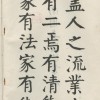 盖人之流業
有二焉有清節
家有法家有術